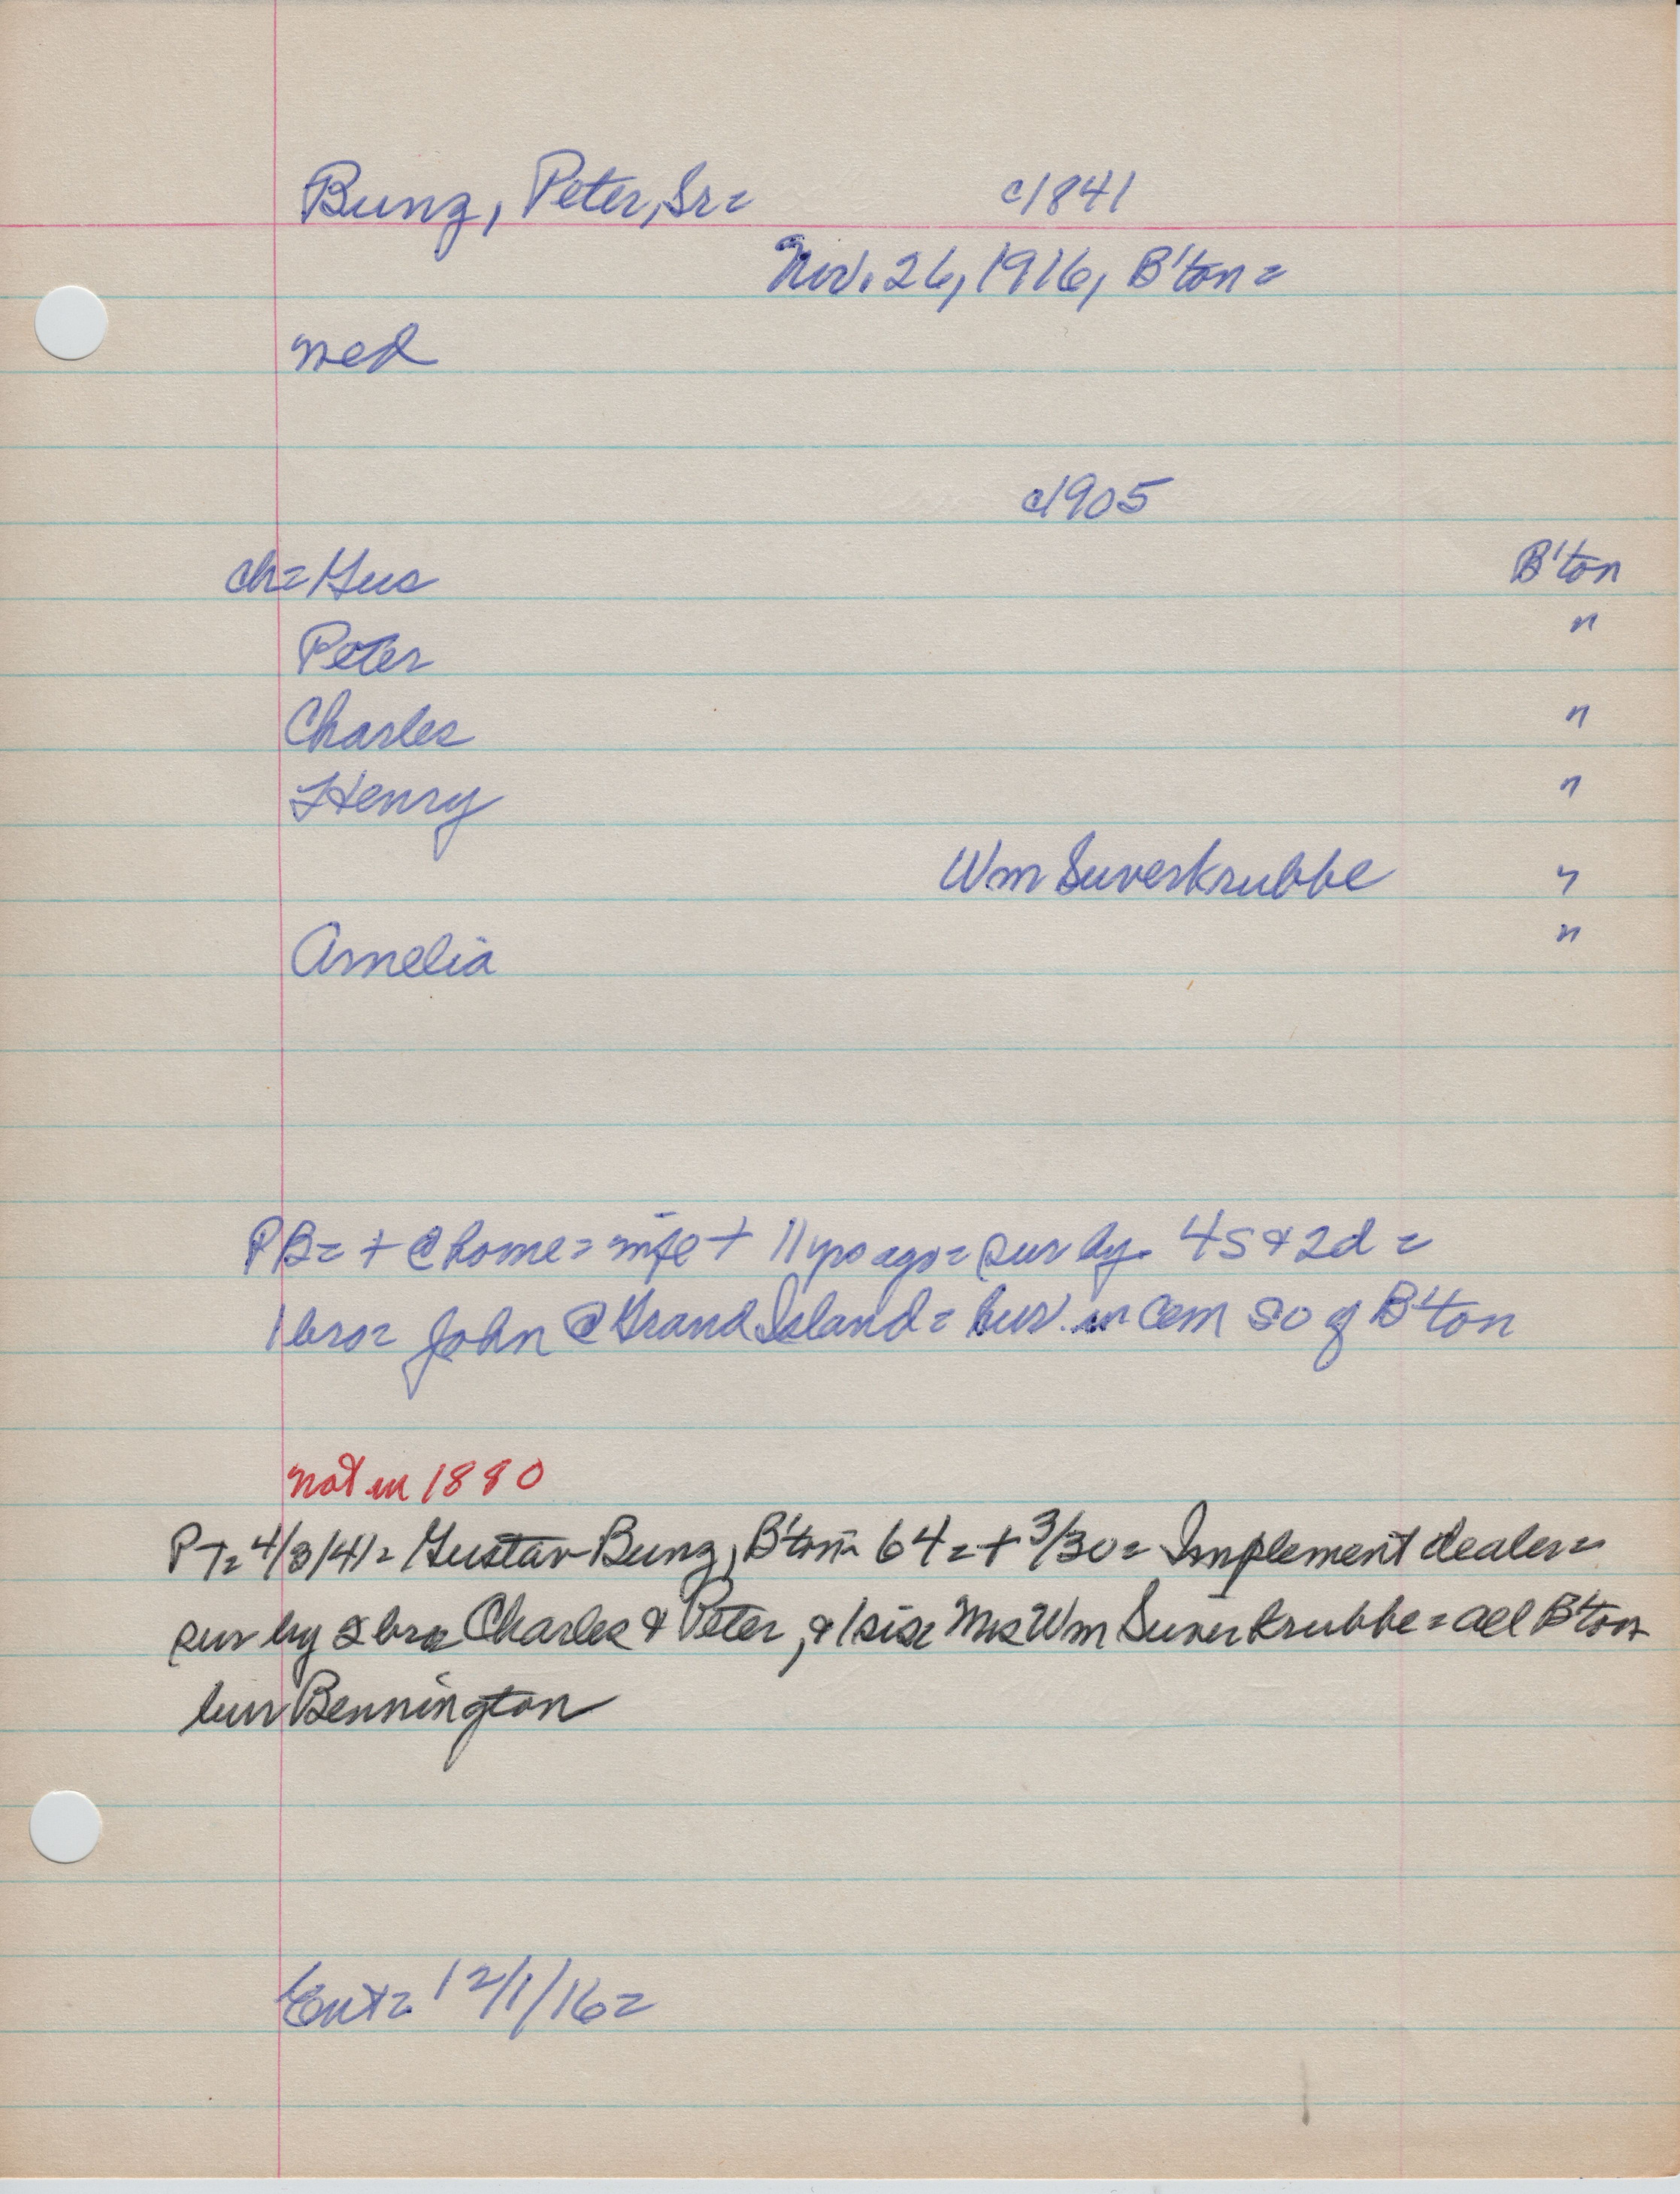 Bunz, Peter, Sr= c1841
Nov. 26, 1916, B'ton=
med
c1905
ch= Gus B'ton
Peter "
Charles "
Henry "
Wm Suverkrubbe "
Amelia "
PB= + @ home= wife + 11 yrs ago= sur by 4s & 2d=
1 bro= John @ Grand Island= bur. in Cem So of B'ton
not in 1880
PT= 4/3/41= Gustav Bunz, B'ton= 64= + 3/30= Implement dealer=
sur by 2 bro= Charles & Peter, & 1 sis= Mrs Wm Suverkrubbe= all B'ton
bur Bennington
Ent= 12/1/16=